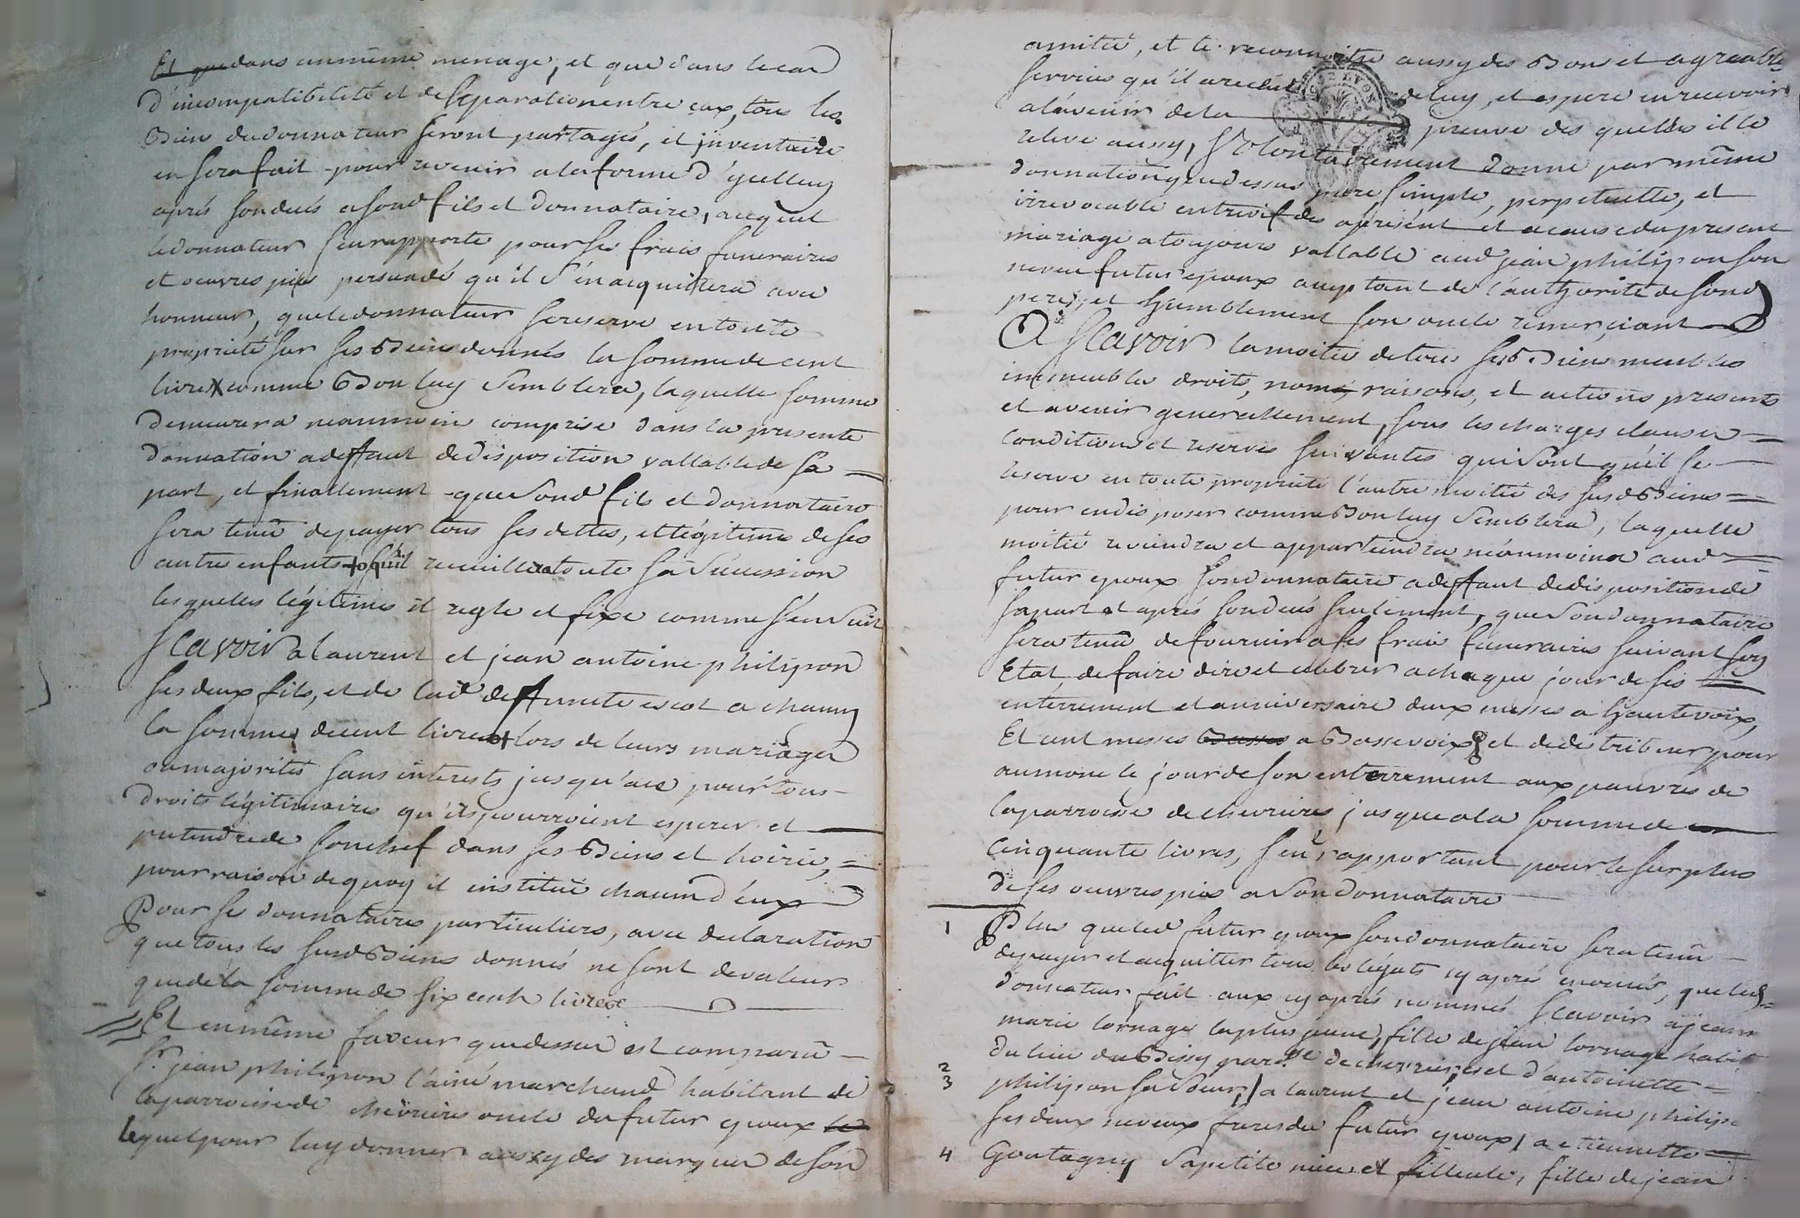 Et que dans un même menage, et que dans le cas
d'incompatibilité et de separation entre eux, tous les
Biens du donnateur seront partagés, et jnventaire
en sera fait pour revenir a la forme d'jcelluy
aprés son decés a sond fils et donnataire, auquel
le donnateur s'en rapporte pour ses frais funeraires
et oeuvres pies persuadé qu'il s'en acquittera avec
honneur, que le donnateur se reserve en toute
proprieté sur ses Biens donnés la somme de cent
livres comme Bon luy semblera, laquelle somme
demeurera neanmoin comprise dans la presente
donnation a deffaut de disposition vallable de sa
part, et finallement que sond fils et donnataire
sera tenû de payer tous ses dettes, et légitimes de ses
autre enfants + qu'il recuillera toute sa sucession
lesquelles légitimes il regle et fixe comme s'en suit
Scavoir a laurent et jean antoine philipon
ses deux fils, et de lad deffuncte escot a chacun
la somme de cent livres lors de leurs mariages
ou majorités sans intérests jusqu'ala pour tous
droits légitimaires qu'ils pourroient esperer et
pretendre de son chef dans ses Biens et hoirie,
pour raison de quoy il institüe chacun d'eux
Pour ses donnataires particuliers, avec declaration
que tous les susd Biens donnés ne sont de valeur
que de la somme de six cents livres
Et en même faveur que dessus est comparû
sr. jean philipon l'ainé marchand habitant de
la parroisse de chevrieres oncle du futur epoux le
lequel pour luy donner aussy des marques de son
amitié, et le reconnoitre aussy des Bons et agreables
services qu'il a receu de luy, et espere en recevoir
a l'avenir de la preuve des quelles il le
releve aussy, volontairement donne par même
donnation que dessus pure, simple, perpetuelle, et
irrevocable entrevifs des aprésent et a cause du present
mariage a toujours vallable aud jean philipon son
neveu futur epoux acceptant de l'authorité de sond
pere, et humblement son oncle remerciant
A Scavoir la moitié de tous ses Biens meubles
immeubles droits, noms raisons, et actions presents
et avenir generallement, sous les charges clauses
conditions et reserves suivantes qui sont qu'il se
reserve en toute proprieté l'autre moitié des susd Biens
pour en disposer comme Bon luy semblera, laquelle
moitié reviendra et appartiendra néanmoins aud
futur epoux son donnataire a deffaut de disposition de
sa part et aprés son decés seulement, que son donnataire
sera tenû de fournir a ses frais funeraires suivant son
Etat de faire dire et celebrer a chaque jour de ses
entérrement et anniversaire deux messes a hautevoix,
Et cent messes Basses a Bassevoix et de distribuer pour
aumone le jour de son enterrement aux pauvres de
la parroisse de chevrieres jusque a la somme de
cinquante livres, s'en rapportant pour le surplus
de ses oeuvres pies a son donnataire
1 Plus que led futur epoux son donnataire sera tenû
de payer et acquitter tous les légats cy aprés enoncés, que led
donnateur fait aux cy aprés nommés Scavoir a jeanne
marie tornage la plus jeune, fille de jean tornage habit
du lieu du Bissy parsse de chevrieres et d'antoinette
2
3 philipon sa soeur, a laurent et jean antoine philipon
ses deux neveux freres du futur epoux, a etiennette
4 Goutagny sa petite niece et filleule, fille de jean